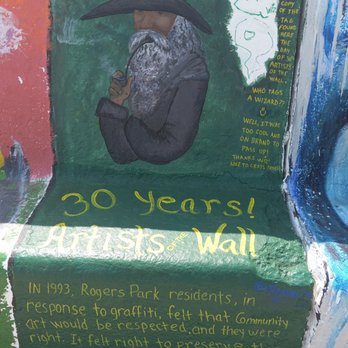 COPY OF THE
TAG
FOUND
HERE
THE
DAY
OF
ARTISTS
OF THE
WALL.
WHO TAGS
A WIZARD?!
WELL, IT WAS
TOO COOL AND
ON BRAND TO
PASS UP!
THANKS
30 Years!
Artists of the Wall
IN 1993, Rogers Park residents, in
response to graffiti, felt that Community
Art would be respected, and they were
right. It felt right to preserve